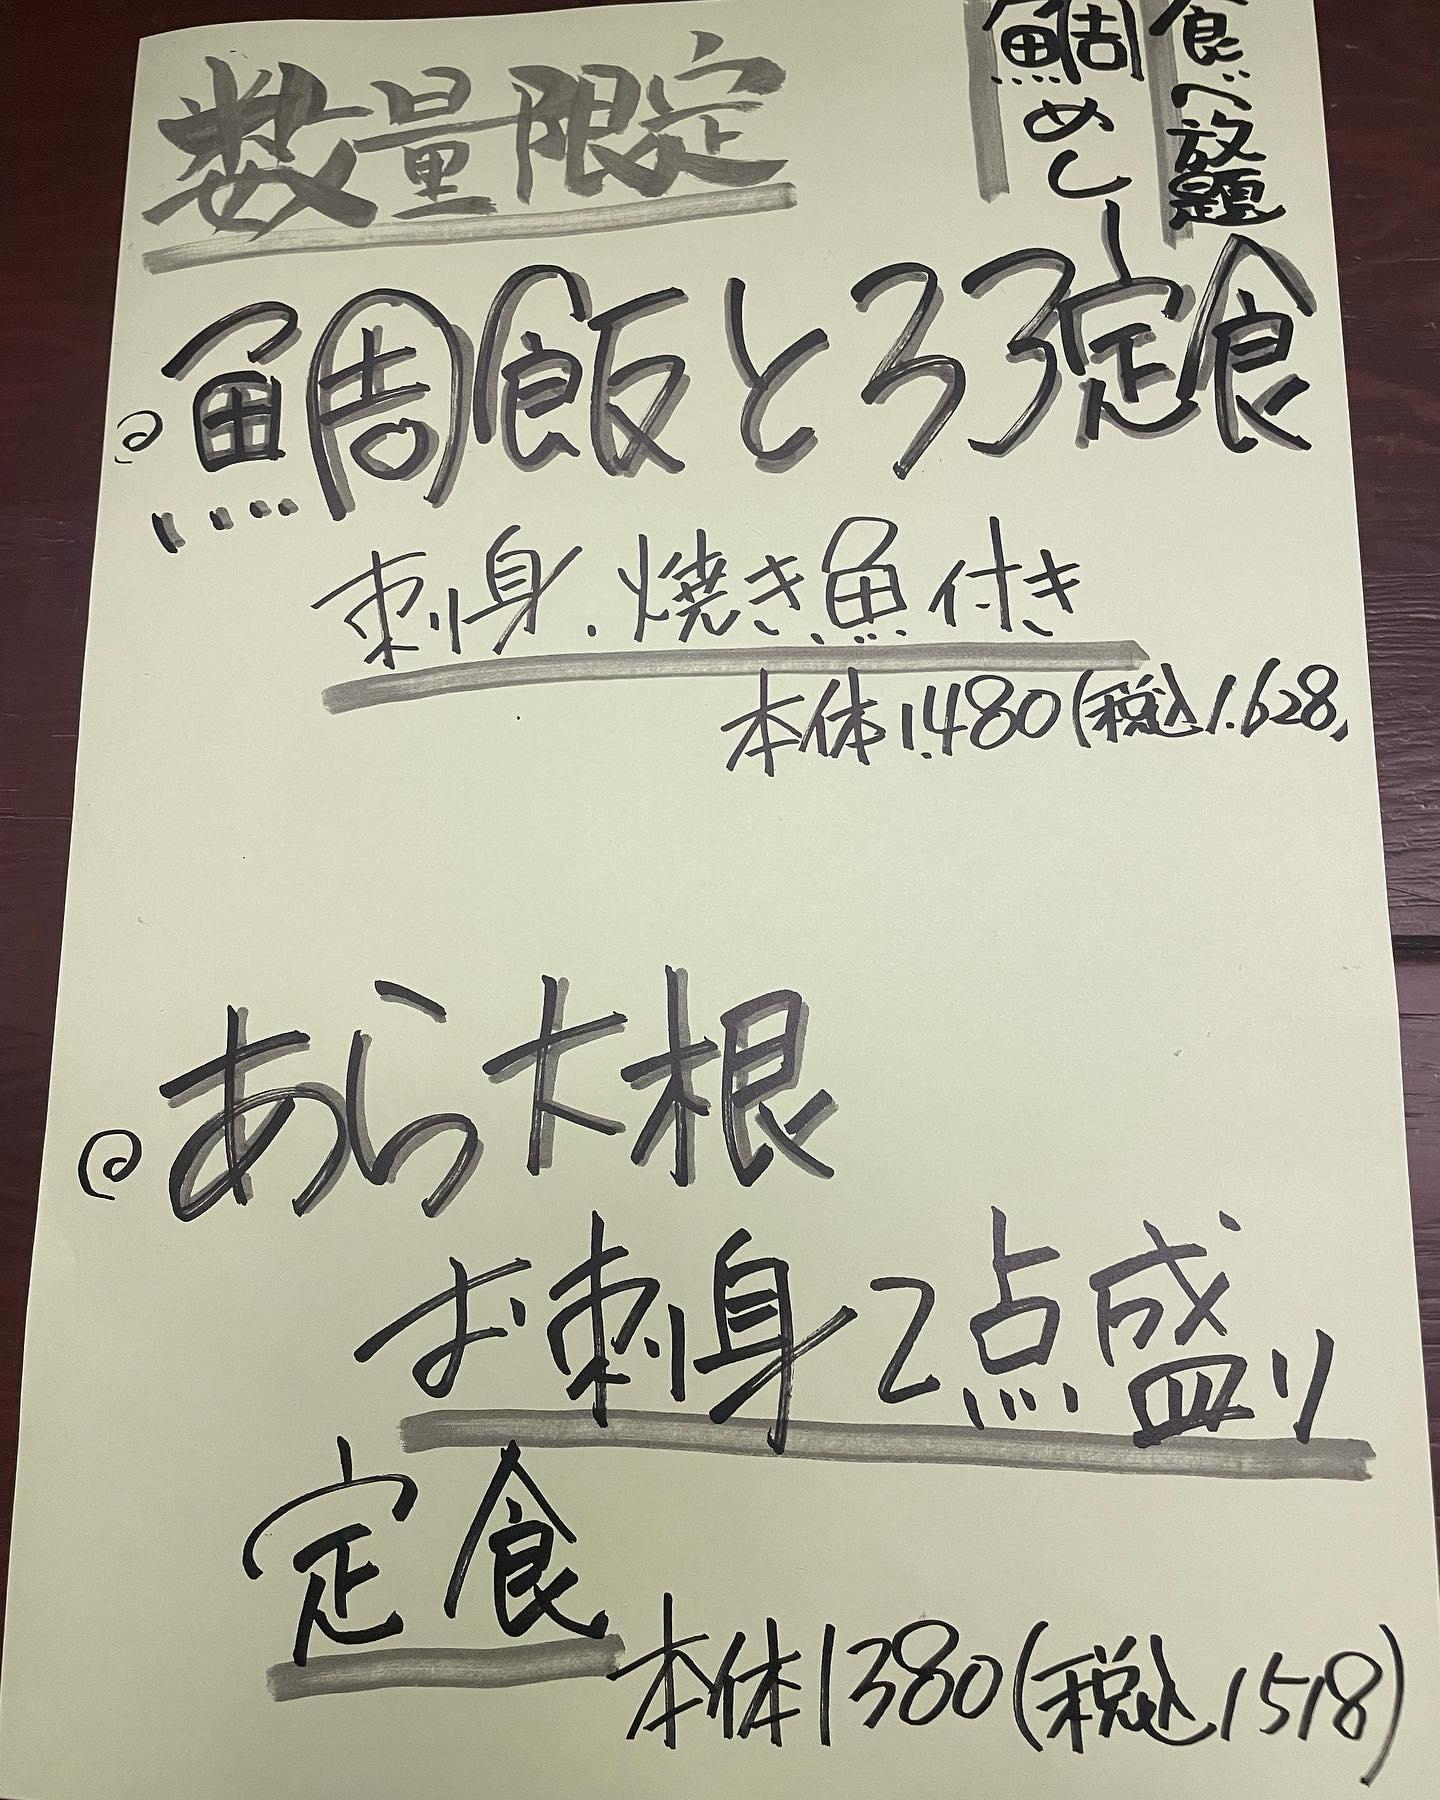 食べ放題
鯛めし
数量限定
鯛飯とろろ定食
刺身.焼き魚付き
本体1.480(税込1.628)
あら大根
お刺身2点盛り
定食
本体1380(税込1518)